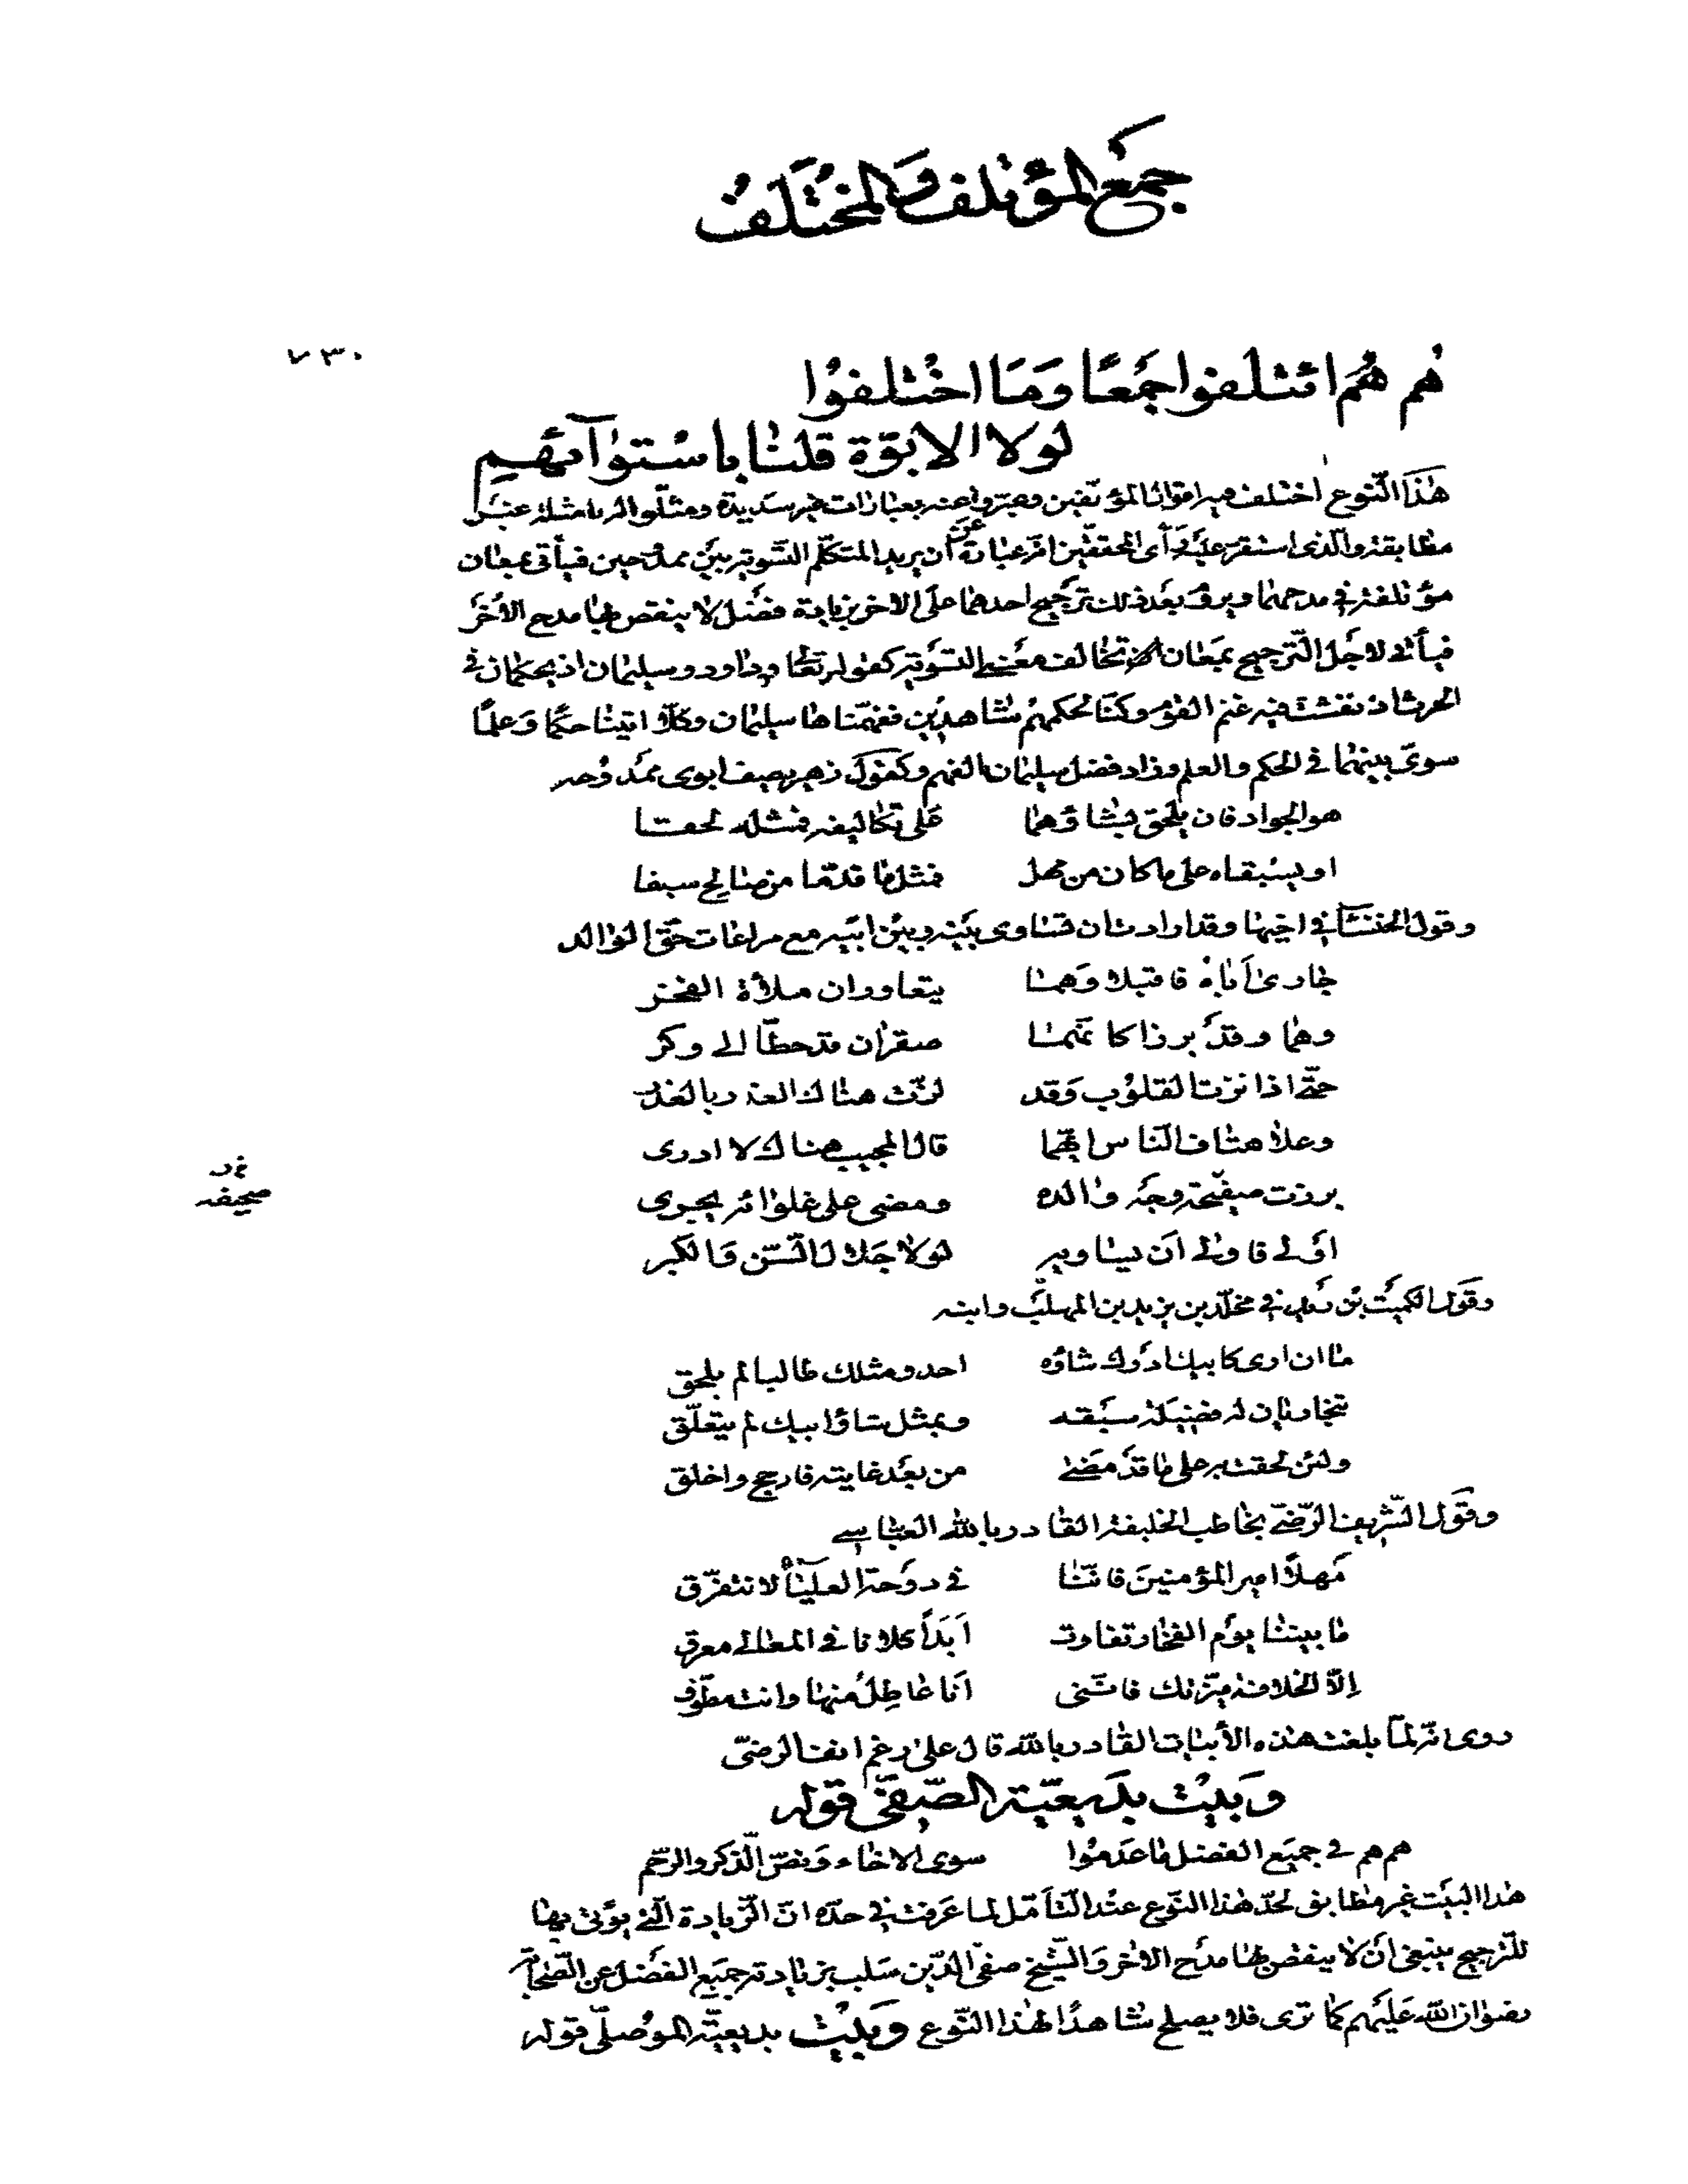 جَمْعُ المؤتلف وَالمخُتَلَفُ
٧٣٠
هُم هُمُ ائتلفوا جَمْعًا وَمَا اخْتلفوُا
لولا الابوّة قلنا باسْتوآئهم
هٰذَا النّوع اختلف فيه اقوال المؤلّفين وعبّروا عنه بعبارات غير سديدة ومثّلوا له بامثلة غير
مطابقة والّذى استقرّ عليْه رَأى المحققّين انّه عبارة عن أن يريد المتكلّم التّسوية بيْن ممدوحين فيأتى بمعان
مؤتلفة فى مدحهما ويروم بعْد ذلك ترجيح احدهما على الاخر بزيادة فضْل لا ينقص بها مدح الأخَر
فيأتى لاجْل التّرجيح بمَعان تخالف معْنى التسْوية كقوله تعٰالى وداود وسليمان اذ يحكمان فى
الحرث اذ نفشت فيه غنم القوْم وكنّا لحكمهمْ شاهدين ففهّمناها سليمان وكلّا اتينا حكمًا وَعلمًا
سوىّ بينهما فى الحكم والعلم وزاد فضل سليمان بالفهم وكقوْل زهير يصف ابوى ممْدوحه
هو الجواد فان يلحق بشاوهما علَى تكاليفه فمثله لحقا
او يسْبقاه على ما كان من مهل فمثل ما قدّما من صالح سبقا
وقول الخنسآء فى اخيها وقد ارادت ان تساوى بيْنه وبيْن ابيْه مع مراعات حقّ الوالد
جارى أَباهُ فاقبلا وَهما يتعاوران ملأة الفخر
وهما وقدْ برزا كانّهما صقران قد حطّا الى وكر
حتّى اذا نزت القلوُب وَقد لزّت هناك العذر بالعذر
وعلا هتاف النّاس ايّهما قال المجيب هناك لا ادرى
برزت صفيحة وجْه والده ومضى على غلوائه يجرى
نخـ
صحيفه
اوْلى فاولى انْ يساويه لولا جَلال السّنّ وَالكبر
وقوْل الكميْت بْن زيد فى مخلّد بن يزيد بن المهلّب وابنه
ما ان ارى كابيك ادْرك شاوْه احد ومثلك طالبا لم يلحق
تتجاريان له فضيلة سبْقه وبمثل شاوْ ابيك لم يتعلّق
ولئن لحقت به على ما قدْ مضَى من بعْد غايته فارجح واخلق
وقوْل الشّريف الرّضىّ يخاطب الخليفة القادر بالله العبّاسى
مهلًا امير المؤمنين فانّنا فى دوْحة العليْآء لا نتفرّق
ما بيننا يوْم الفخار تفاوت أَبَدًا كلانا فى المعالى معرق
إلّا الخلافة ميّزتك فانّنى انَا عاطِلٌ منها وانت مطوّق
روى انّه لمّا بلغت هذه الأبيات القادر بالله قال على رغم انف الرضىّ
وَبيْت بدَيعيّة الصّفىّ قوله
هم هم فى جميَع الفضل ما عدَموُا سوى الاخاء وَنصّ الّذكر والرّحم
هذا البيْت غير مطابق لحدّ هٰذا النّوع عنْد التّأمّل لما عَرفت فى حدّه انّ الزّيادة الّتى يؤتى بها
للتّرجيح ينبغى أنْ لا ينقص بها مدْح الاخر وَالشّيخ صفىّ الدّين سَلب بزيادته جميَع الفضْل عن الصّحابة
رضوان الله عليْهم كما ترى فلا يصلح شاهدًا لهٰذا النّوع وَبيْت بديعيّة الموْصلّى قوله